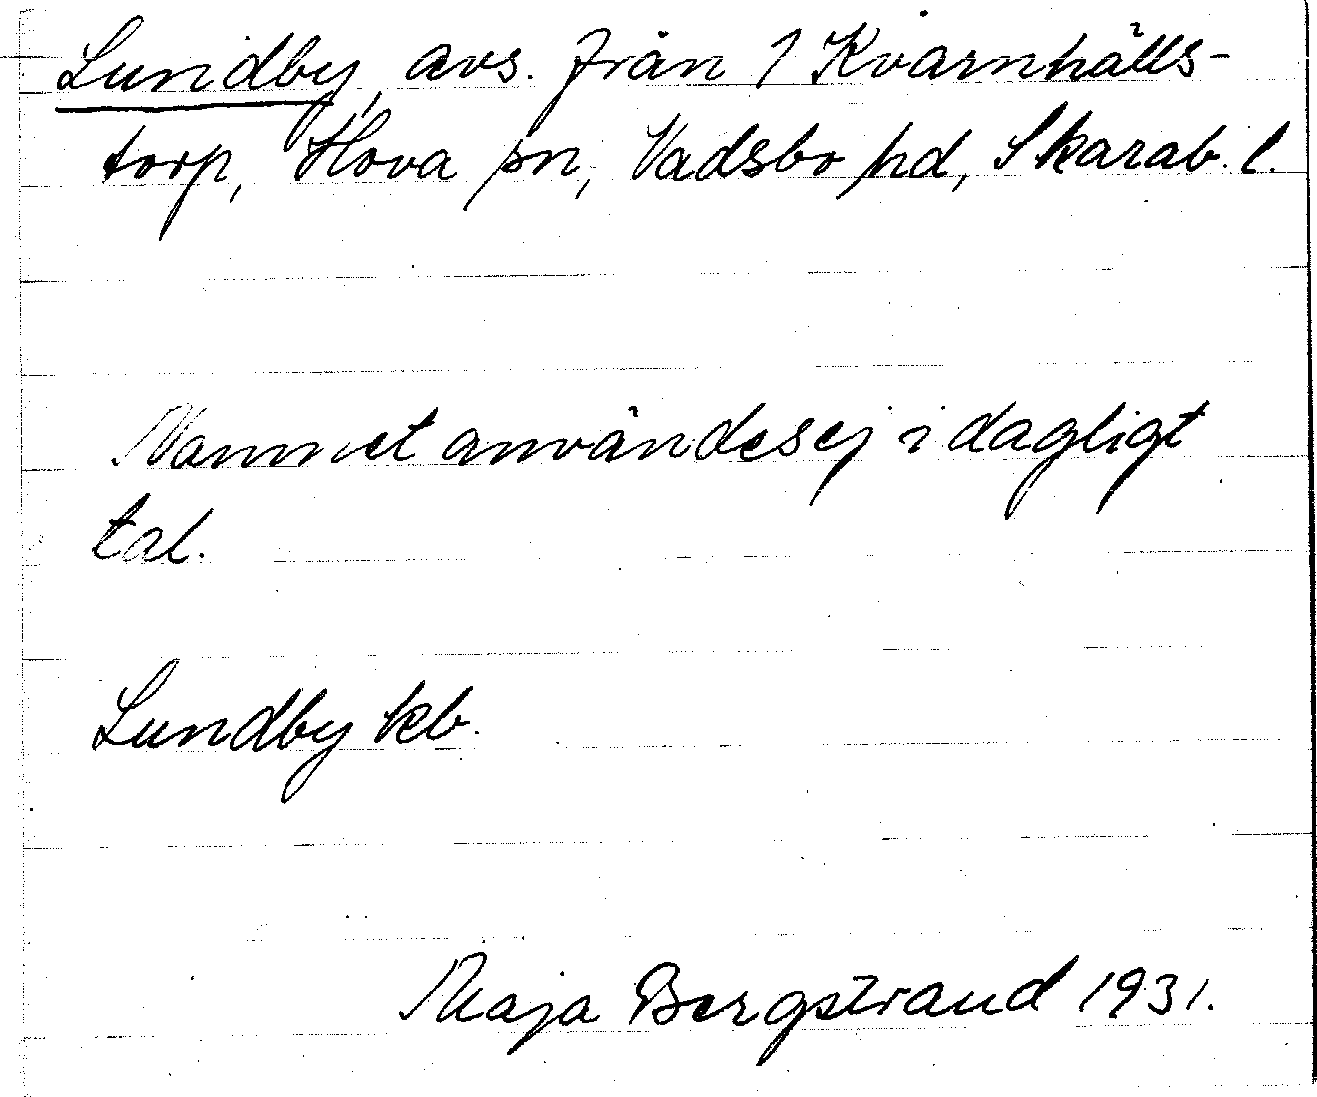 Lundby, avs. från 1 Kvarnhälls-
torp, Hova sn, Vadsbo hd, Skarab. l.
Namnet användes ej i dagligt
tal.
Lundby kb.
Maja Bergstrand 1931.